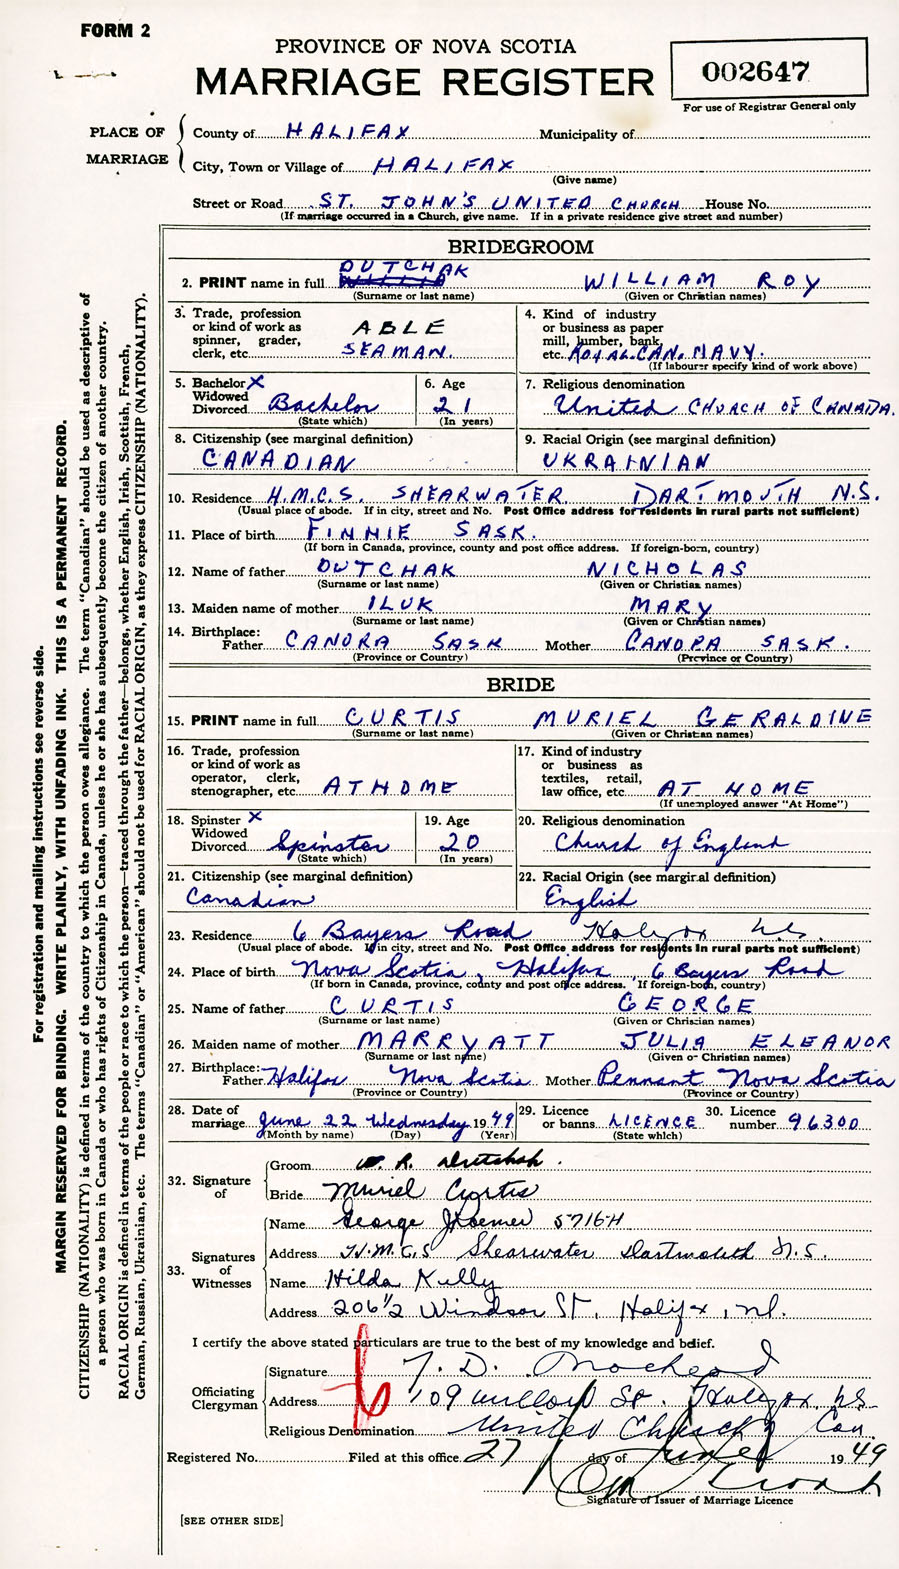 FORM 2
PROVINCE OF NOVA SCOTIA
MARRIAGE REGISTER
002647
For use of Registrar General only
PLACE OF MARRIAGE
County of HALIFAX Municipality of
City, Town or Village of HALIFAX
(Give name)
Street or Road ST. JOHN'S UNITED CHURCH House No.
(If marriage occurred in a Church, give name. If in a private residence give street and number)
BRIDEGROOM
2. PRINT name in full DUTCHAK WILLIAM ROY
(Surname or last name) (Given or Christian names)
3. Trade, profession or kind of work as spinner, grader, clerk, etc. ABLE SEAMAN.
4. Kind of industry or business as paper mill, lumber, bank, etc. ROYAL CAN. NAVY.
(If labourer specify kind of work above)
5. Bachelor X Widowed Divorced Bachelor
(State which)
6. Age 21
(In years)
7. Religious denomination
United CHURCH OF CANADA.
8. Citizenship (see marginal definition)
CANADIAN
9. Racial Origin (see marginal definition)
UKRAINIAN
10. Residence H.M.C.S. SHEARWATER DARTMOUTH N.S.
(Usual place of abode. If in city, street and No. Post Office address for residents in rural parts not sufficient)
11. Place of birth FINNIE SASK.
(If born in Canada, province, county and post office address. If foreign-born, country)
12. Name of father DUTCHAK NICHOLAS
(Surname or last name) (Given or Christian names)
13. Maiden name of mother ILUK MARY
(Surname or last name) (Given or Christian names)
14. Birthplace: Father CANORA SASK Mother CANORA SASK.
(Province or Country) (Province or Country)
BRIDE
15. PRINT name in full CURTIS MURIEL GERALDINE
(Surname or last name) (Given or Christian names)
16. Trade, profession or kind of work as operator, clerk, stenographer, etc. AT HOME
17. Kind of industry or business as textiles, retail, law office, etc. AT HOME
(If unemployed answer "At Home")
18. Spinster X Widowed Divorced Spinster
(State which)
19. Age 20
(In years)
20. Religious denomination
Church of England
21. Citizenship (see marginal definition)
Canadian
22. Racial Origin (see marginal definition)
English
23. Residence 6 Bayers Road Halifax N.S.
(Usual place of abode. If in city, street and No. Post Office address for residents in rural parts not sufficient)
24. Place of birth Nova Scotia, Halifax, 6 Bayers Road
(If born in Canada, province, county and post office address. If foreign-born, country)
25. Name of father CURTIS GEORGE
(Surname or last name) (Given or Christian names)
26. Maiden name of mother MARRYATT JULIA ELEANOR
(Surname or last name) (Given or Christian names)
27. Birthplace: Father Halifax Nova Scotia Mother Pennant Nova Scotia
(Province or Country) (Province or Country)
28. Date of marriage June 22 Wednesday 1949
(Month by name) (Day) (Year)
29. Licence or banns LICENCE
(State which)
30. Licence number 96300
32. Signature of
Groom W. R. Dutchak.
Bride Muriel Curtis
33. Signatures of Witnesses
Name George 5716H
Address H.M.C.S Shearwater Dartmouth N.S.
Name Hilda Kelly
Address 206 1/2 Windsor St. Halifax, N.S.
I certify the above stated particulars are true to the best of my knowledge and belief.
Officiating Clergyman
Signature D.
Address 109 Willow St. Halifax NS
Religious Denomination United Church Can.
Registered No. Filed at this office 27 day of June 1949
Signature of Issuer of Marriage Licence
[SEE OTHER SIDE]
For registration and mailing instructions see reverse side.
MARGIN RESERVED FOR BINDING. WRITE PLAINLY, WITH UNFADING INK. THIS IS A PERMANENT RECORD.
CITIZENSHIP (NATIONALITY) is defined in terms of the country to which the person owes allegiance. The term "Canadian" should be used as descriptive of
a person who was born in Canada or who has rights of Citizenship in Canada, unless he or she has subsequently become the citizen of another country.
RACIAL ORIGIN is defined in terms of the people or race to which the person—traced through the father—belongs, whether English, Irish, Scottish, French,
German, Russian, Ukrainian, etc. The terms "Canadian" or "American" should not be used for RACIAL ORIGIN, as they express CITIZENSHIP (NATIONALITY).